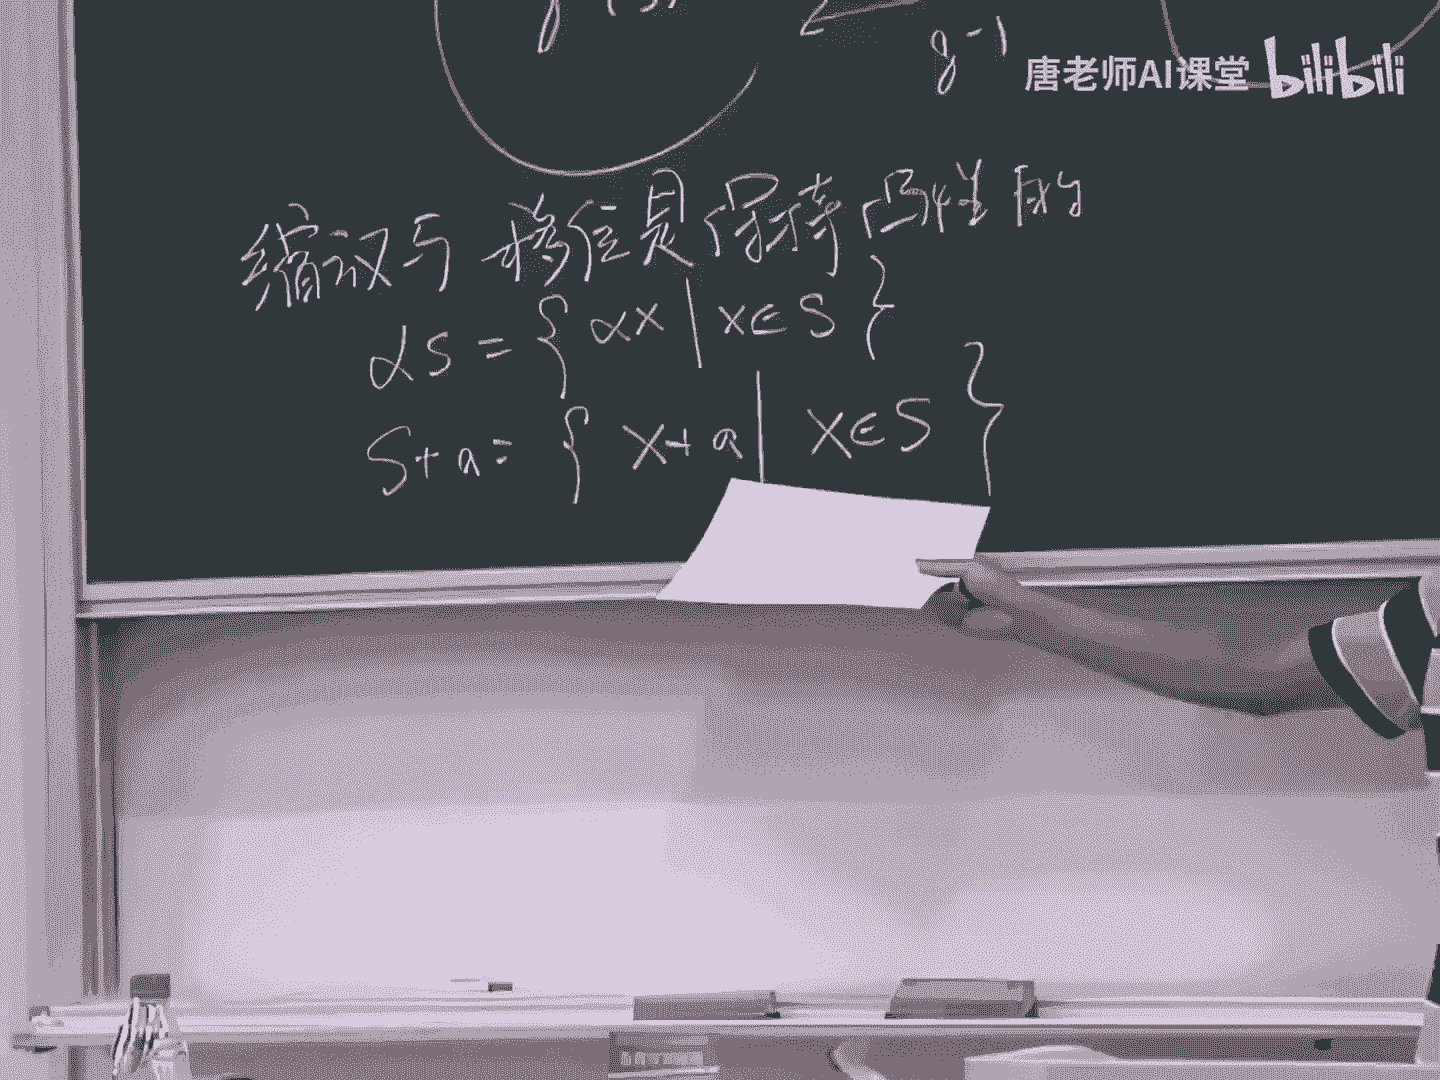 g⁻¹
唐老师AI课堂 bilibili
缩放与移位是保持凸性的
αS = { αx | x∈S }
S+a= { x+a | x∈S }